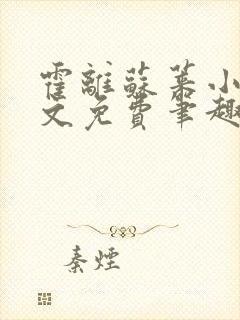 霍離蘇慕小
文免費筆趣
秦煙